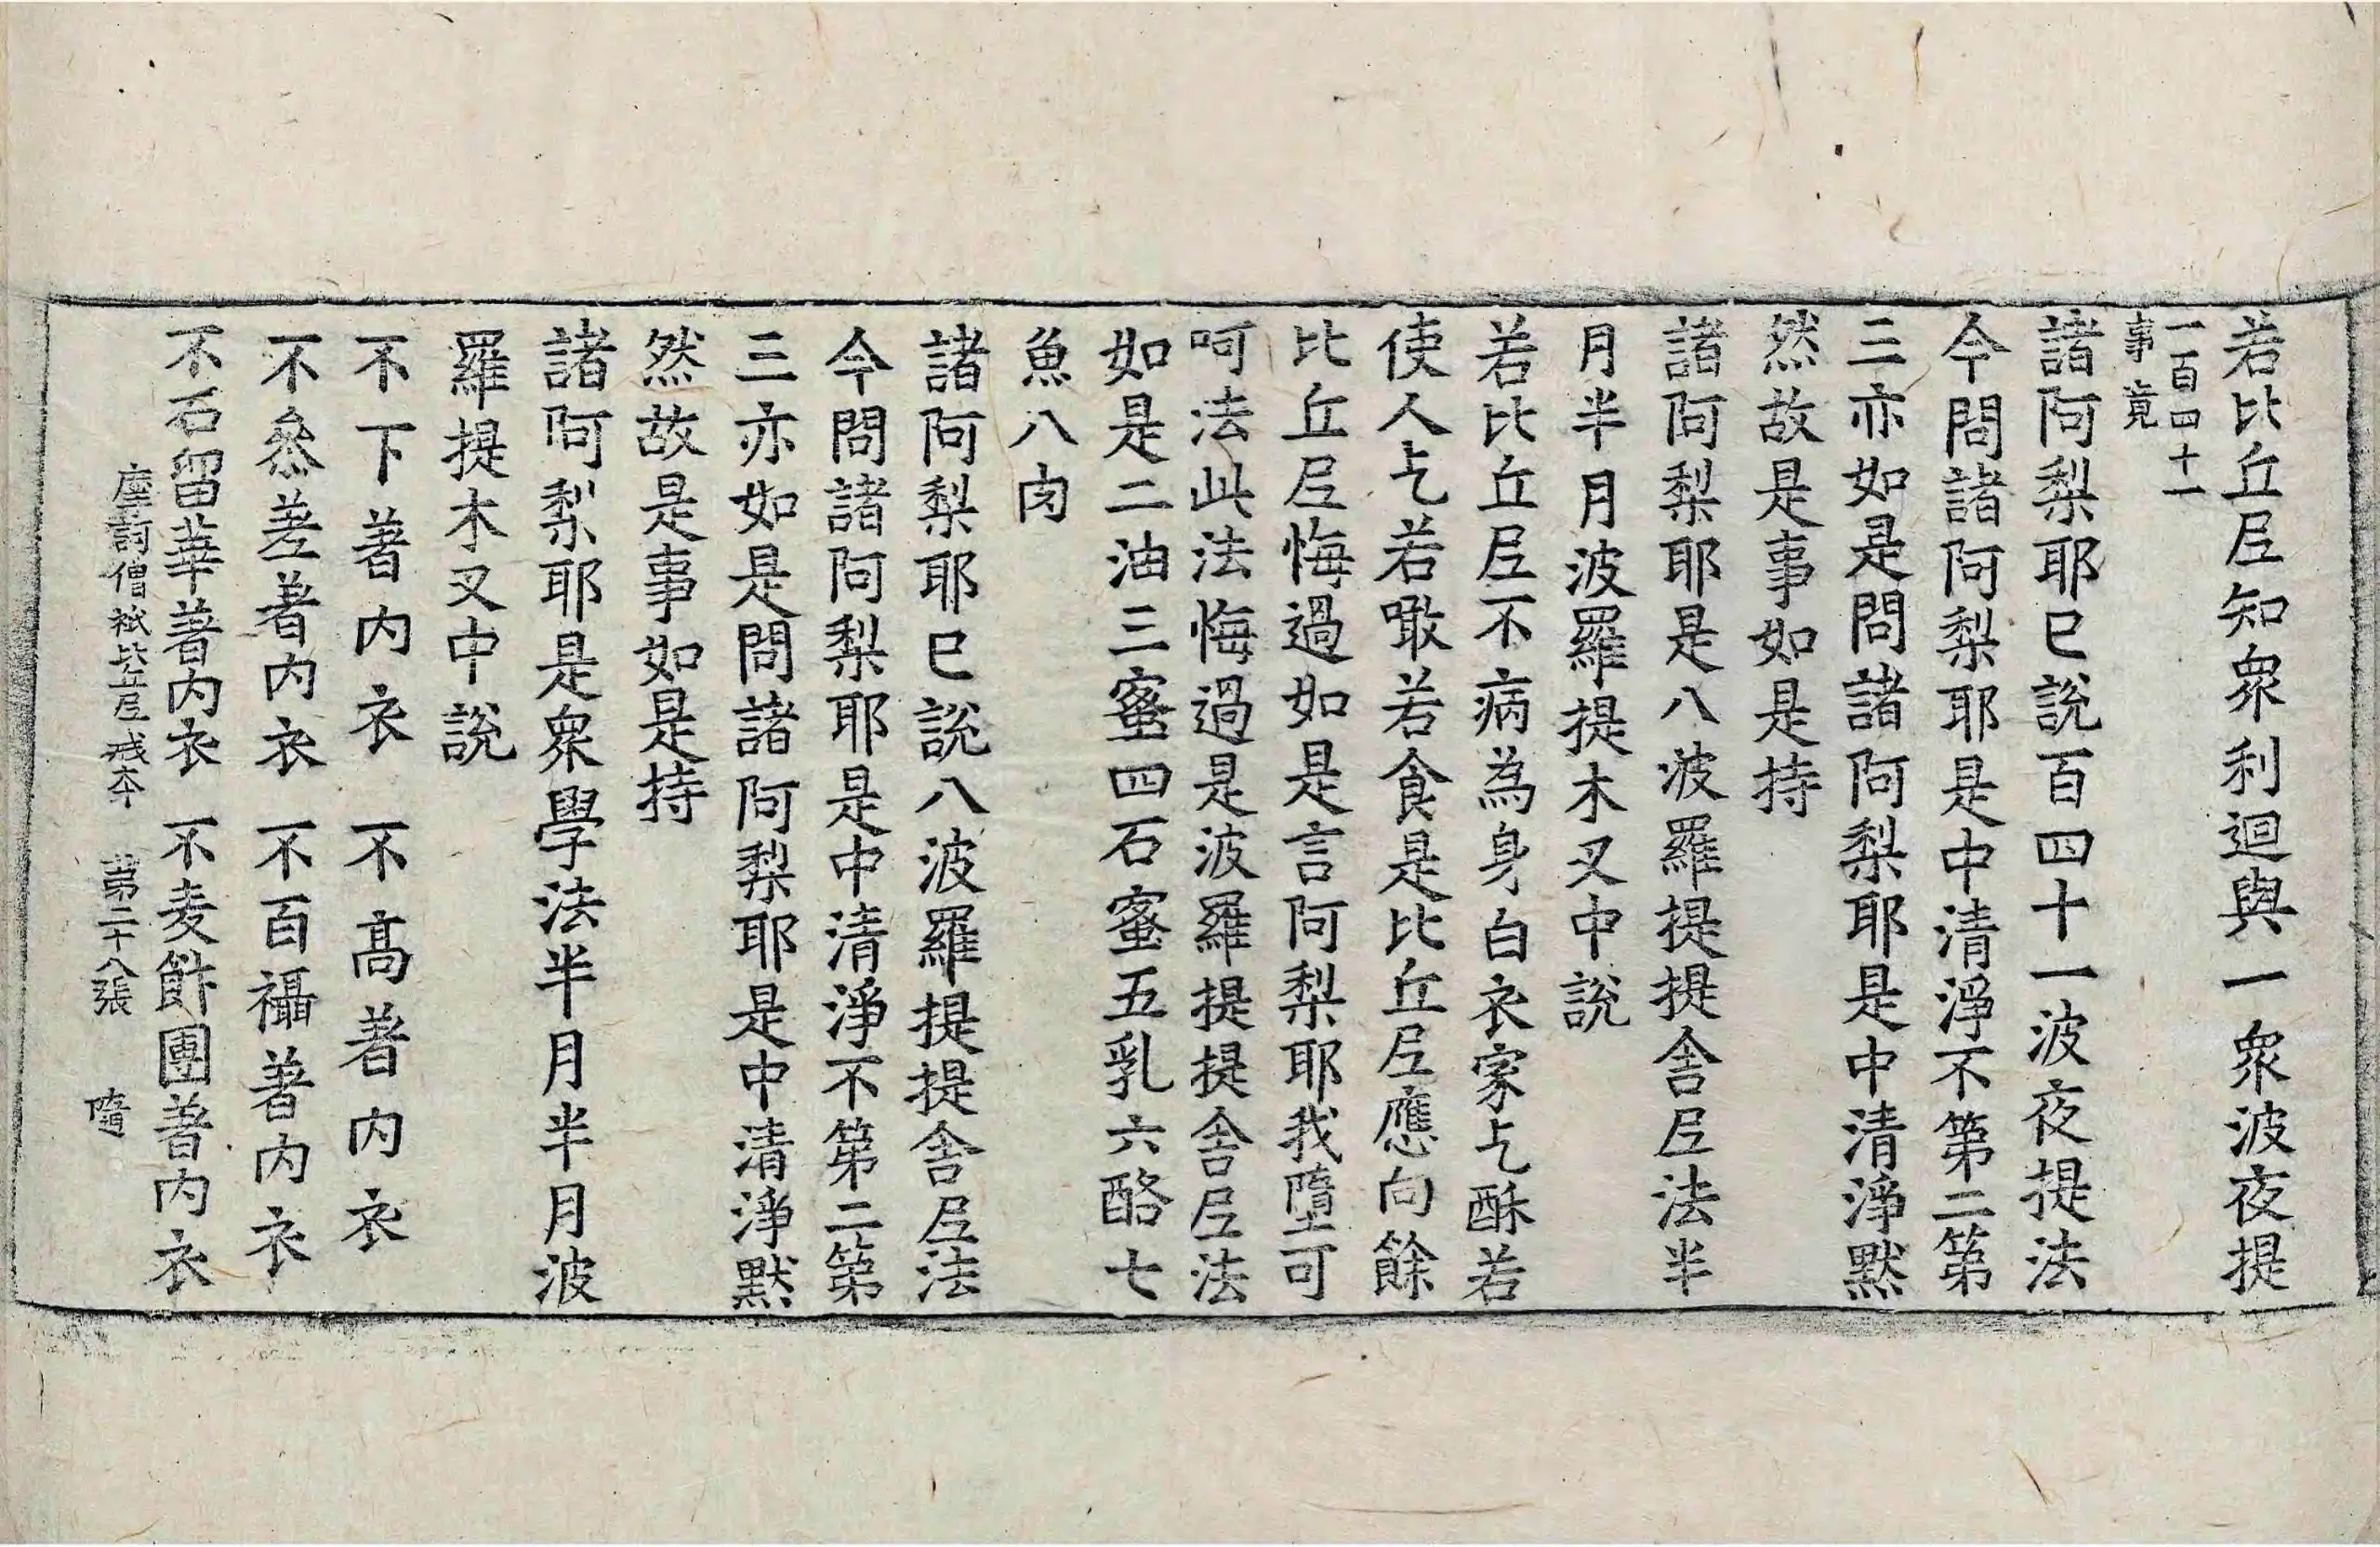 若比丘尼知衆利迴與一衆波夜提
一百四十一
事竟
諸阿梨耶已說百四十一波夜提法
今問諸阿梨耶是中清淨不第二第
三亦如是問諸阿梨耶是中清淨黙
然故是事如是持
諸阿梨耶是八波羅提提舎尼法半
月半月波羅提木叉中說
若比丘尼不病為身白衣家乞酥若
使人乞若噉若食是比丘尼應向餘
比丘尼悔過如是言阿梨耶我墮可
呵法此法悔過是波羅提提舎尼法
如是二油三蜜四石蜜五乳六酪七
魚八肉
諸阿梨耶已說八波羅提提舎尼法
今問諸阿梨耶是中清淨不第二第
三亦如是問諸阿梨耶是中清淨黙
然故是事如是持
諸阿梨耶是衆學法半月半月波
羅提木叉中說
不下著内衣 不高著内衣
不叅差著内衣 不百襵著内衣
不石留華著内衣 不麦飵團著内衣
摩訶僧祇比丘尼戒本 第二十八張 隨